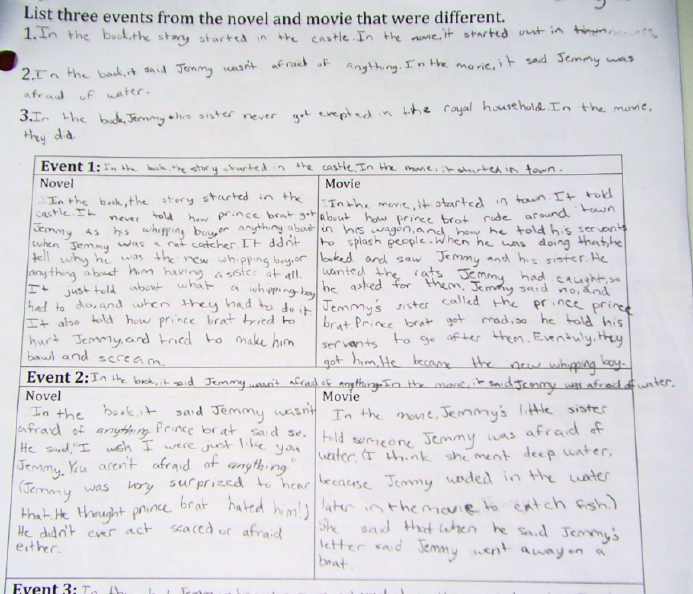 List three events from the novel and movie that were different.
1.In the book,the story started in the castle.In the movie,it started out in
2.In the book,it said Jemmy wasn't afraid of anything.In the movie,it said Jemmy was
afraid of water.
3.In the book,Jemmy +his sister never got excepted in the royal household.In the movie,
they did.
Event 1:In the book,the story started in the castle.In the movie,it started in town.
Novel
In the book,the story started in the
castle.It never told how prince brat got
Jemmy as his whipping boy,or anything about
when Jemmy was a rat catcher.It didn't
tell why he was the new whipping boy,or
anything about him having a sister at all.
It just told about what a whipping-boy
had to do,and when they had to do it.
It also told how prince brat tried to
hurt Jemmy,and tried to make him
bawl and scream.
Movie
In the movie, it started in town. It told
about how prince brat rode around town
in his wagon,and how he told his servants
to splash people.When he was doing that,he
looked and saw Jemmy and his sister.He
wanted the rats Jemmy had caught,so
he asked for them.Jemmy said no,and
Jemmy's sister called the prince prince
brat.Prince brat got mad,so he told his
servants to go after them.Eventuly,they
got him.He became the new whipping boy.
Event 2:In the book,it said Jemmy wasn't afraid of anything.In the movie,it said Jemmy was afraid of water.
Novel
In the book,it said Jemmy wasn't
afraid of anything.Prince brat said so.
He said,"I wish I were just like you
Jemmy.You aren't afraid of anything."
(Jemmy was very surprized to hear
that.He thought prince brat hated him!)
He didn't ever act scaced or afraid
either.
Movie
In the movie,Jemmy's little sister
told someone Jemmy was afraid of
water.(I think she ment deep water,
because Jemmy waded in the water
later in the movie to catch fish.)
She said that when he said Jemmy's
letter said Jemmy went away on a
boat.
Event 3: